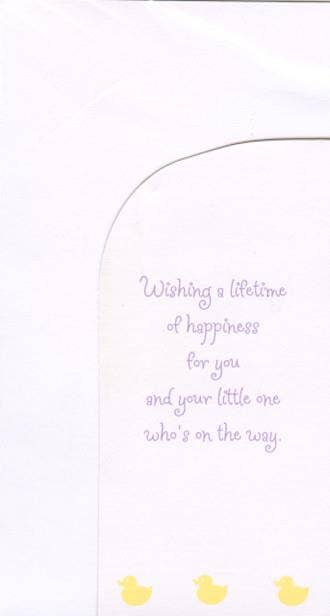 Wishing a lifetime
of happiness
for you
and your little one
who's on the way.